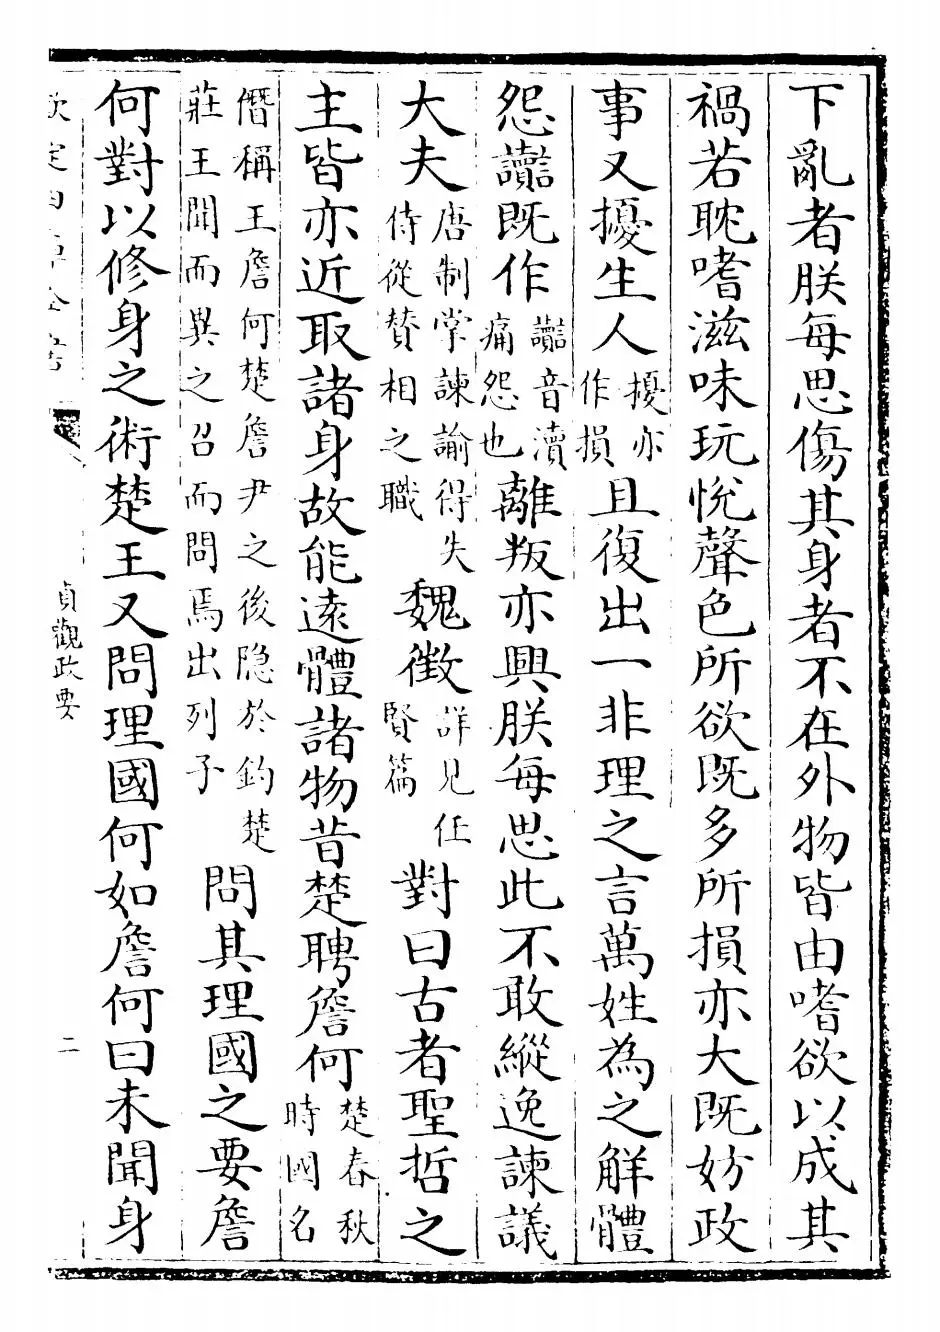 下亂者朕每思傷其身者不在外物皆由嗜欲以成其
禍若耽嗜滋味玩悅聲色所欲既多所損亦大既妨政
事又擾生人擾亦作損且復出一非理之言萬姓為之解體
怨讟既作讟音瀆痛怨也離叛亦興朕每思此不敢縱逸諫議
大夫唐制掌諫諭得失侍從賛相之職魏徵詳見任賢篇對曰古者聖哲之
主皆亦近取諸身故能遠體諸物昔楚聘詹何楚春秋時國名
僭稱王詹何楚詹尹之後隐於釣楚莊王聞而異之召而問焉出列子問其理國之要詹
何對以修身之術楚王又問理國何如詹何曰未聞身
貞觀政要 二